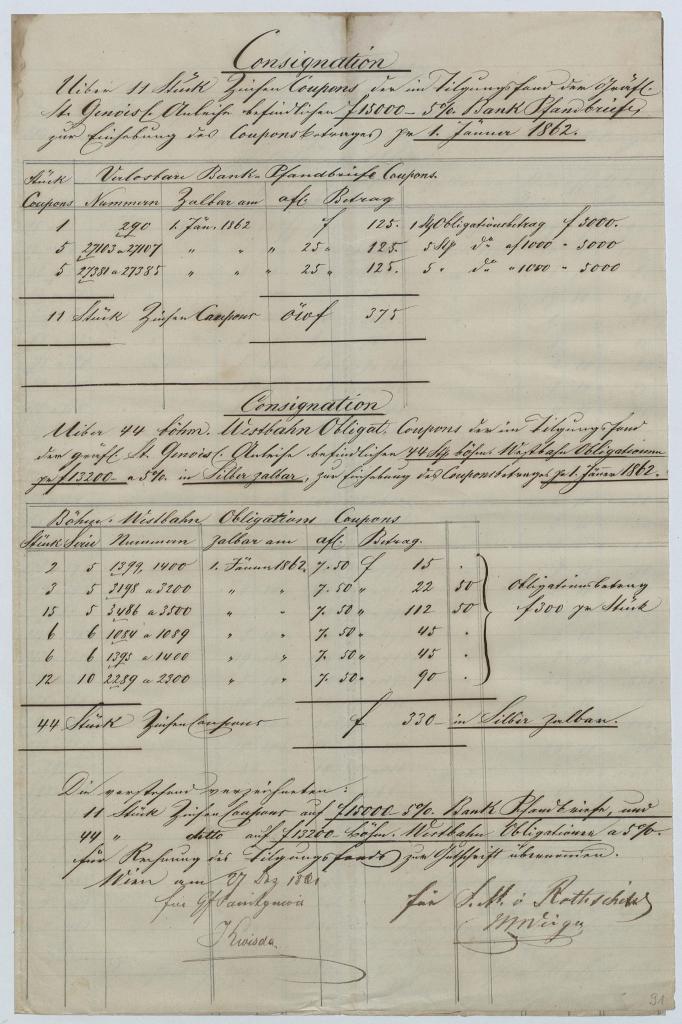 Consignation
Uiber 11 Stück Zinsen Coupons der im Tilgungsfond der Gräfl.
St. Genois'l. Anleihe befindlichen f 15000 - 5%. Bank Pfandbriefe,
zur Einhebung des Couponsbetrages pr 1. Jänner 1862.
Stück Verlosbare Bank-Pfandbriefe Coupons.
Coupons Nummern Zalbar am afl. Betrag
1 290 1. Jän. 1862 f 125. 1 Stk Obligationsbetrag f 5000.
5 27103 a 27107 " " " 25 " 125. 5 Stk do af 1000 " 5000
5 27381 a 27385 " " " 25 " 125. 5 " do " 1000 " 5000
11 Stück Zinsen Coupons öw f 375
Consignation
Uiber 44 böhm. Westbahn Obligat. Coupons der im Tilgungsfond
der gräfl. St. Genois'l. Anleihe befindlichen 44 Stk böhm. Westbahn Obligationen
pr f 13200 - a 5%. in Silber zalbar, zur Einhebung des Couponsbetrages pr 1. Jänner 1862.
Böhm. Westbahn Obligations Coupons
Stück Serie Nummern zalbar am afl. Betrag.
2 5 1399, 1400 1. Jänner 1862. 7. 50 f 15 .
3 5 3198 a 3200 " " 7. 50 " 22 50 Obligationsbetrag
15 5 3486 a 3500 " " 7. 50 " 112 50 f 300 pr Stück
6 6 1084 a 1089 " " 7. 50 " 45 .
6 6 1395 a 1400 " " 7. 50 " 45 .
12 10 2289 a 2300 " " 7. 50 " 90 .
44 Stück Zinsen Coupons f 330 - in Silber zalbar.
Die vorstehend verzeichneten:
11 Stück Zinsen Coupons auf f 15000 5%. Bank Pfandbriefe, und
44 " detto auf f 13200 - böhm. Westbahn Obligationen a 5%.
für Rechnung des Tilgungsfonds zur Gutschrift übernommen.
Wien am 27 Dez 1861
für
für S. M. v Rothschild
Kwisda
91